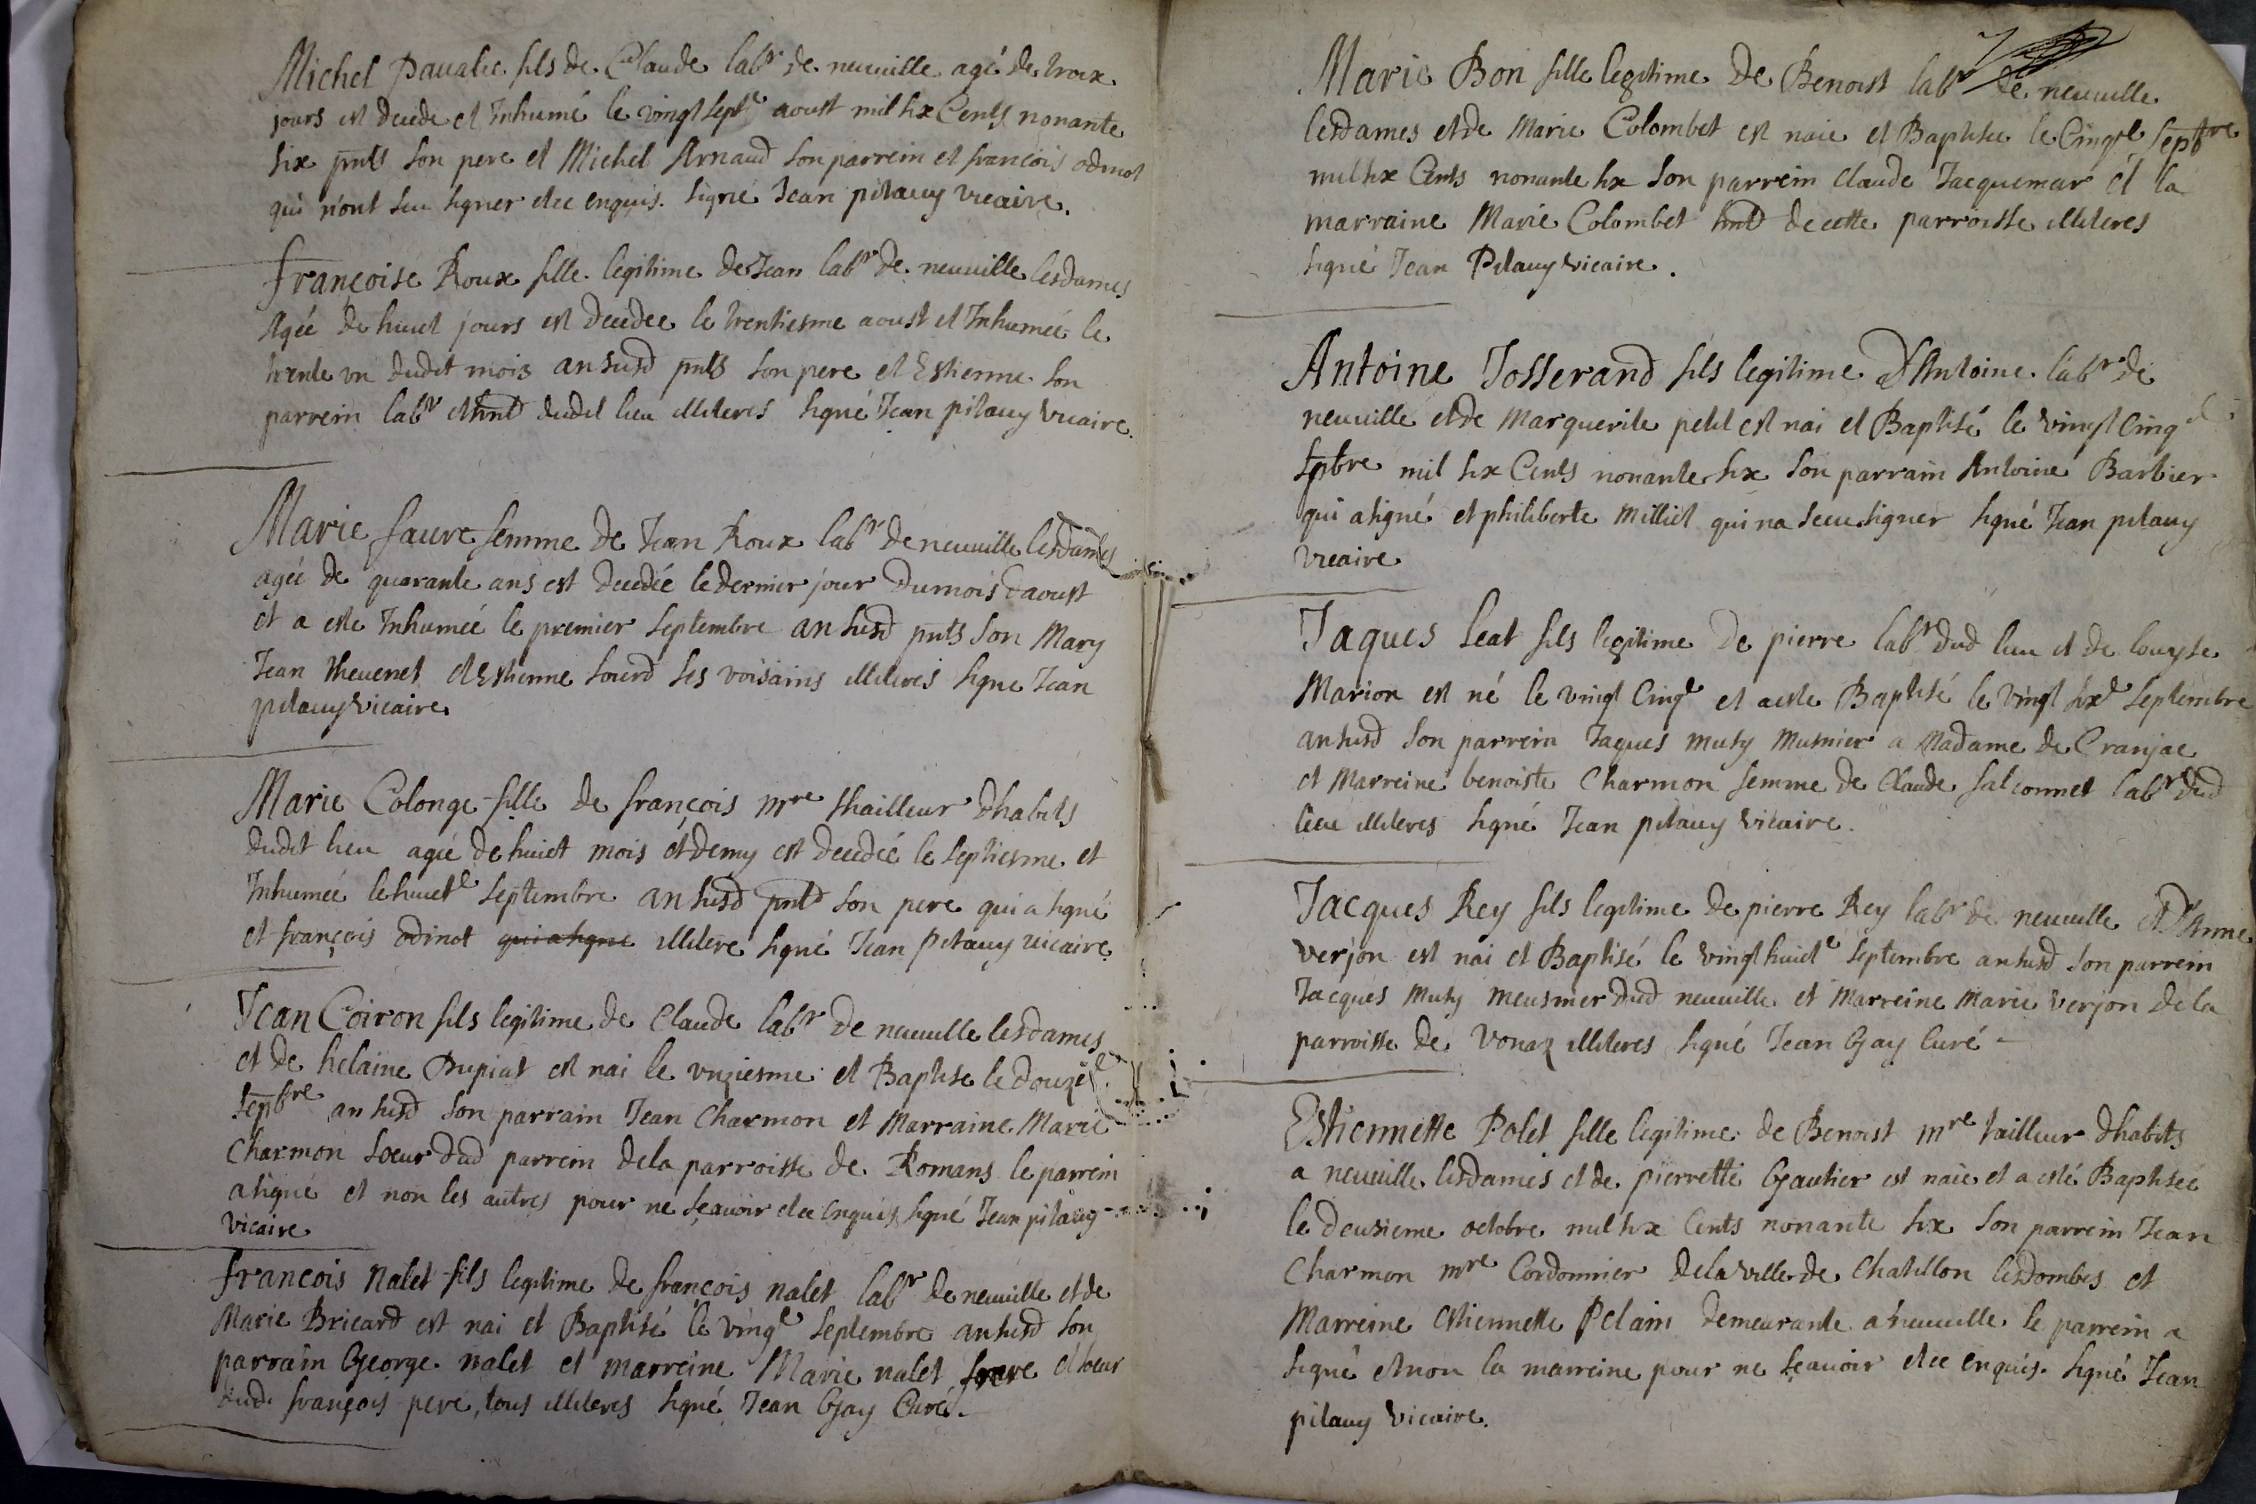 Michel Pavalie fils de Claude labr de neuuille agé de troix
jours est decede et Inhumé le vingt septe aoust mil six Cents nonante
six pnts son pere et Michel Arnaud son parrein et francois odinot
qui n'ont seu signer dee enquis. signé Jean pitauy vicaire.
françoise Roux fille legitime de Jean labr de neuuille lesdames
Agée de huict jours est decedee le trentiesme aoust et Inhumée le
trente vn dudit mois an susd pnts son pere et Estienne son
parrein labr et hnts dudit lieu illiteres signé Jean pitauy vicaire.
Marie faure femme de Jean Roux labr de neuuille lesdames
agée de quarante ans est decedée le dernier jour du mois daoust
et a este Inhumée le premier septembre an susd pnts son Mary
Jean thevenet et Estienne sourd ses voisains illiteres signe Jean
pitauy vicaire
Marie Colonge fille de françois mre thailleur dhabits
dudit lieu agee de huict mois et demy est decedée le septiesme et
Inhumée le huicte septembre an susd pnts son pere qui a signé
et françois odinot qui a signe illitere signé Jean pitauy vicaire
Jean Coiron fils legitime de Claude labr de neuuille lesdames
et de helaine Dupiat est nai le vnziesme et Baptise le douze
septbre an susd son parrain Jean Charmon et Marraine Marie
Charmon soeur dud parrein dela parroisse de Romans le parrein
a signé et non les autres pour ne sçauoir dee enquis signé Jean pitauy
vicaire
francois nalet fils legitime de françois nalet labr de neuuille et de
Marie Bricard est nai et Baptisé le vingte septembre an susd son
parrain George nalet et marreine Marie nalet frere et soeur
dud françois pere, tous illiteres signé Jean Gay Curé.
Marie Bon fille legitime de Benoist labr de neuuille
lesdames et de Marie Colombet est naie et Baptisee le Cinqe septbre
mil six Cents nonante six son parrein claude Jacquemar et la
marraine Marie Colombet hnts de cette parroisse illiteres
signé Jean Pitauy vicaire.
Antoine Josserand fils legitime d'Antoine labr de
neuuille et de Marguerite petit est nai et Baptisé le vingt Cinq
septbre mil six Cents nonante six son parrain Antoine Barbier
qui a signé et philiberte Milliet qui na sceu signer signé Jean pitauy
vicaire
Jaques Leat fils legitime de pierre labr dud lieu et de louyse
Marion est né le vingt Cinqe et a este Baptisé le vingt sixe septembre
an susd son parrein Jaques muty Musnier a Madame de Cranjac
et Marreine benoiste Charmon femme de Claude falconnet labr dud
lieu illiteres signé Jean pitauy vicaire.
Jacques Rey fils legitime de pierre Rey labr de neuuille et d'Anne
verjon est nai et Baptisé le vingt huicte septembre an susd son parrein
Jacques muty meusnier dud neuuille et Marreine Marie verjon de la
parroisse de vonaz illiteres signé Jean Gay Curé
Estiennette Polet fille legitime de Benoist mre tailleur dhabits
a neuuille lesdames et de pierrette Gautier est naie et a esté Baptisée
le deuxieme octobre mil six Cents nonante six son parrein Jean
Charmon mre Cordonnier dela ville de Chatillon lesdombes et
Marreine estiennette Pelain demeurante a neuuille le parrein a
signé et non la marreine pour ne sçauoir dee enquis. signé Jean
pitauy vicaire.